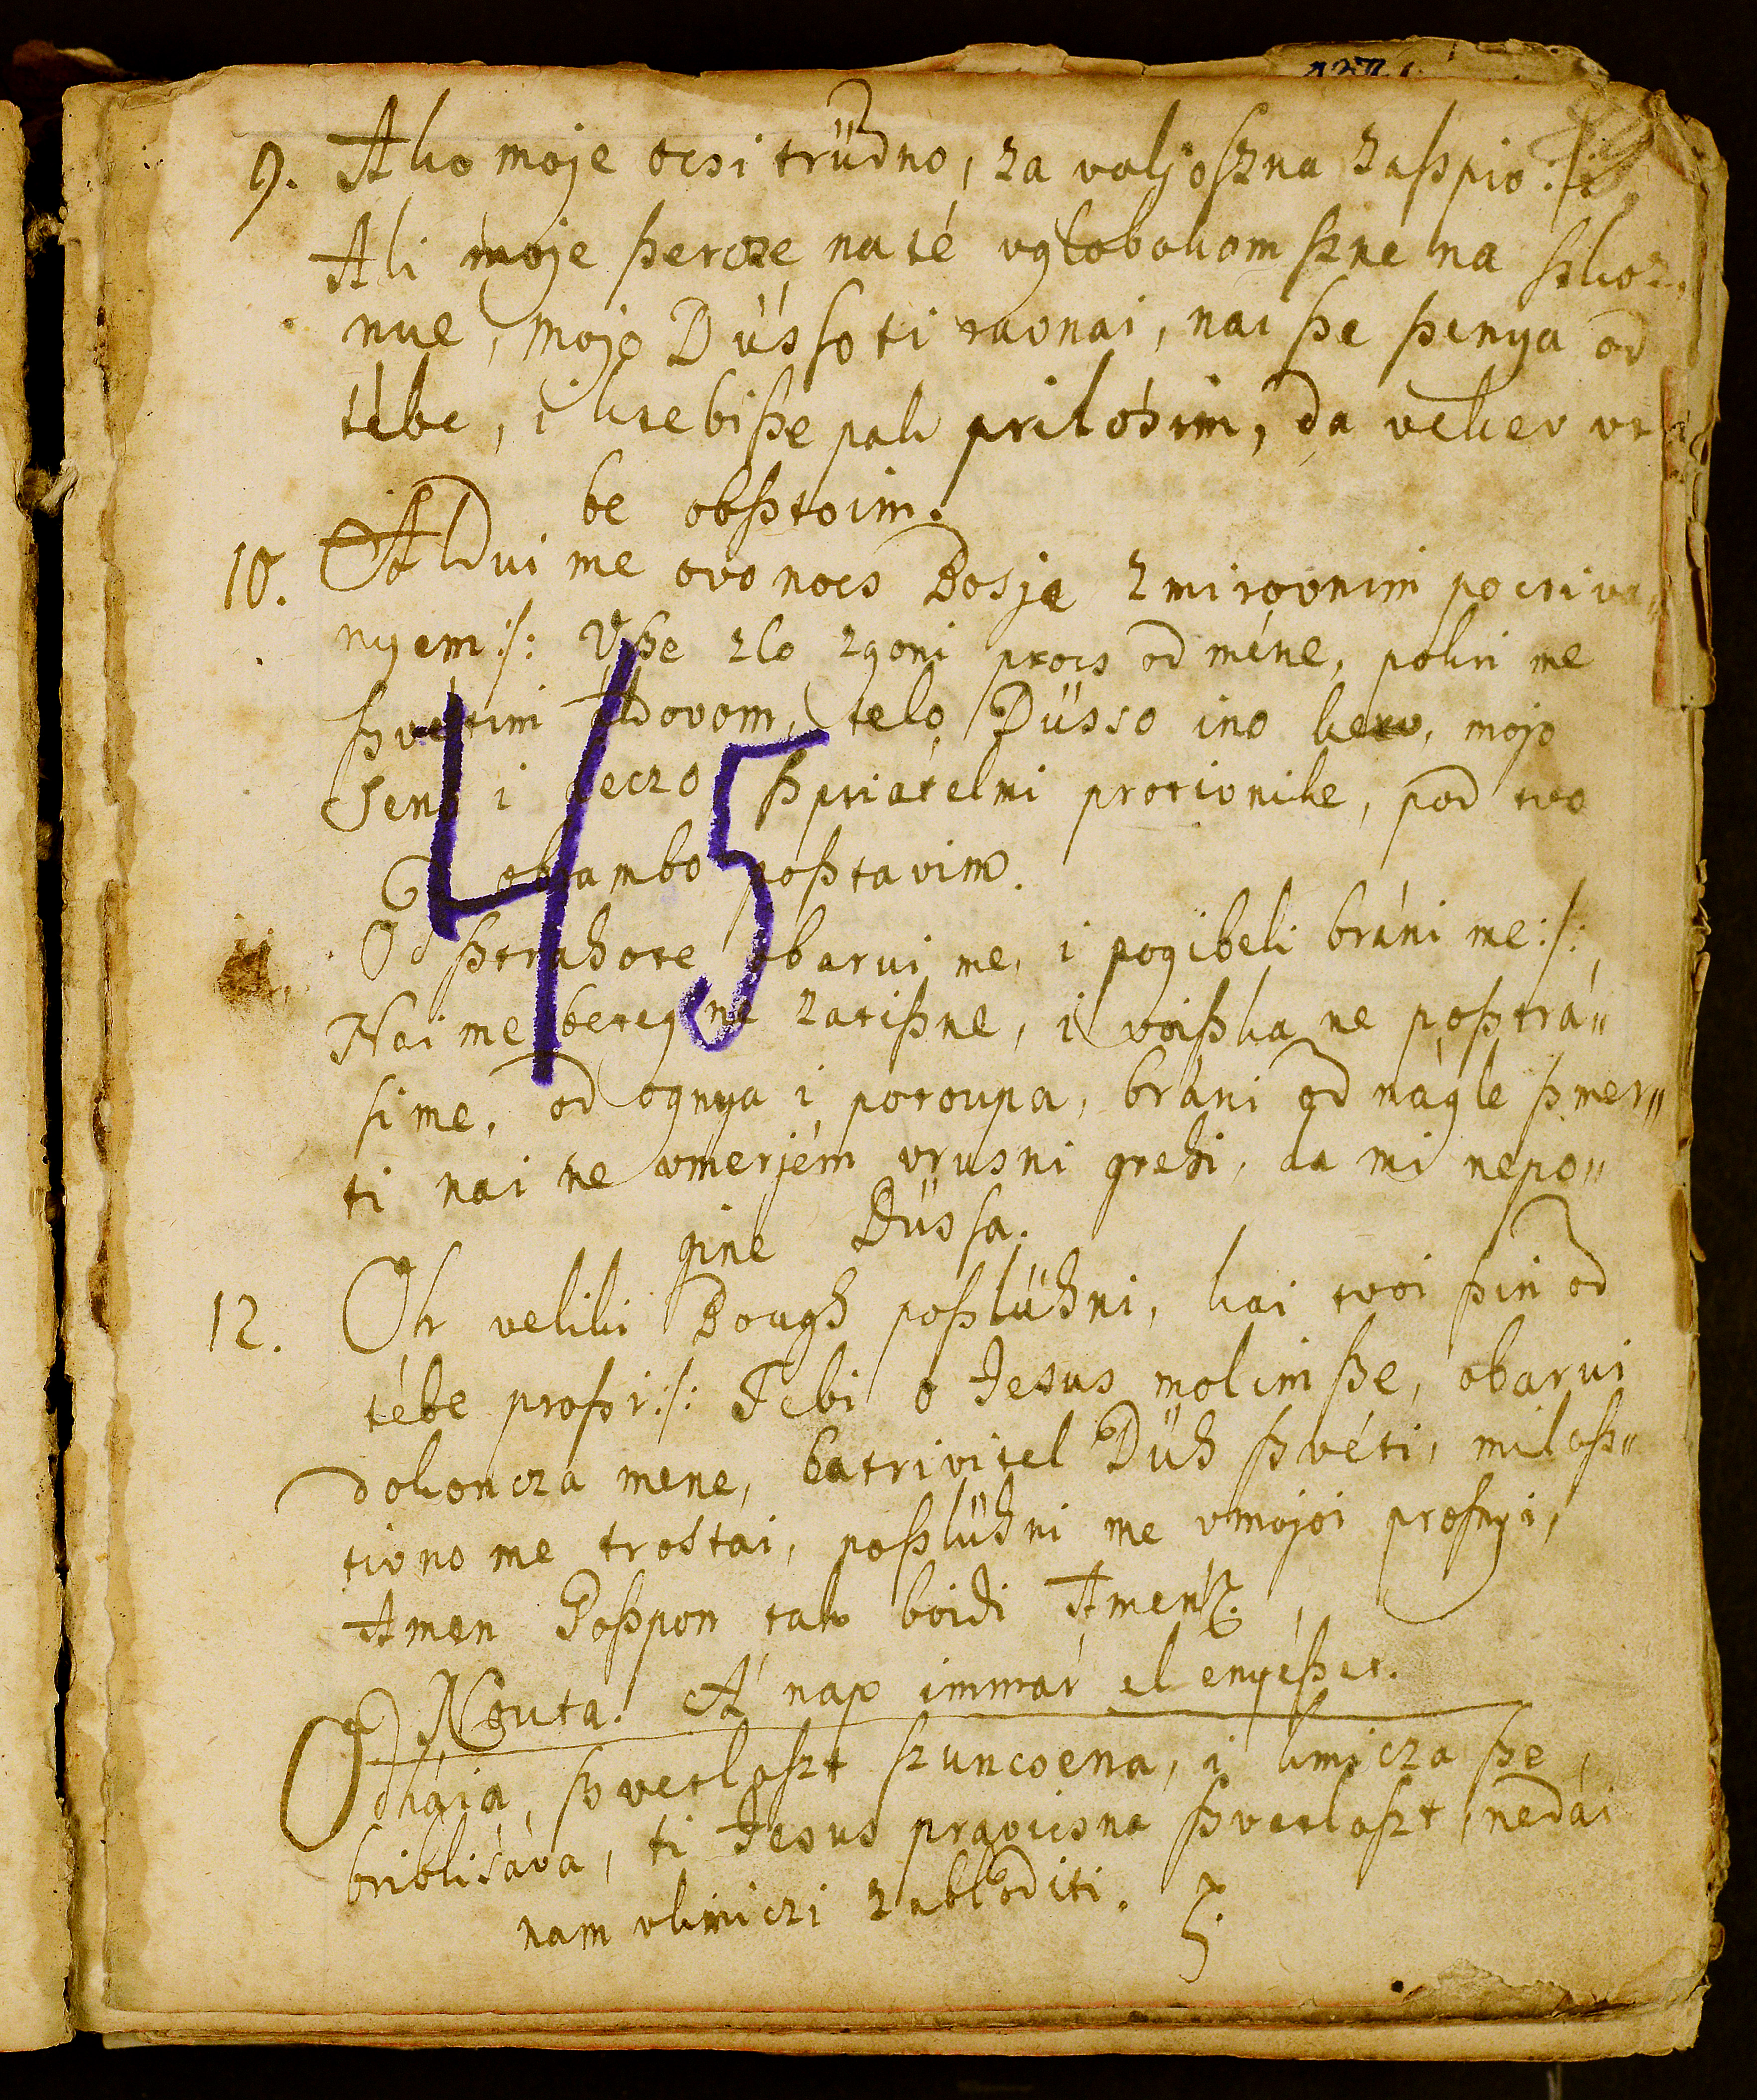 9. Ako moje ocsi trüdno, za voljo ßzna zaßpio :/:
Ali moje ßercze na té vglobokom ßzne na ßkoz
nue, mojo Dússo ti ravnai, nai ße ßenya od
tébe, i k tebi ße pak prilósim, da veker vte
be obßtoim.
10. Aldui me ovo nocs Bosje z mirovnim pocsiva„
nyem :/: Vße zlo zgoni procs od méne, pokri me
ßvétim Aldovom, telo, Düsso ino kerv, mojo
Seno i deczo ßpriátelmi protivnike, pod tvo
obrambo poßtavim.
Od ßtrahote obarui me, i pogibeli bráni me :/:
Nai me beteg ne zatißne, i voißka ne poßtrá„
si me, od ognya i potoupa, bráni od nágle ßmer„
ti nai ne vmerjém vrusni grehi, da mi nepo„
gine Düssa.
12. Oh veliki Bough poßlühni, kai tvoi ßin od
tébe proßi :/: Tebi o Jesus molim ße, obarui
dokoncza mene, batrivitel Düh ßvéti, miloß„
tivno me trostai, poßlühni me vmojoi proßnyi,
Amen Goßpon tak boidi Amen.
Nouta. A' nap immár el enyéßet.
Odhája, ßvetloßt ßzuncsena, i kmicza ße
briblisáva, ti Jesus pravicsna ßvetloßt, nedái
nam vkmiczi zabloditi.
45